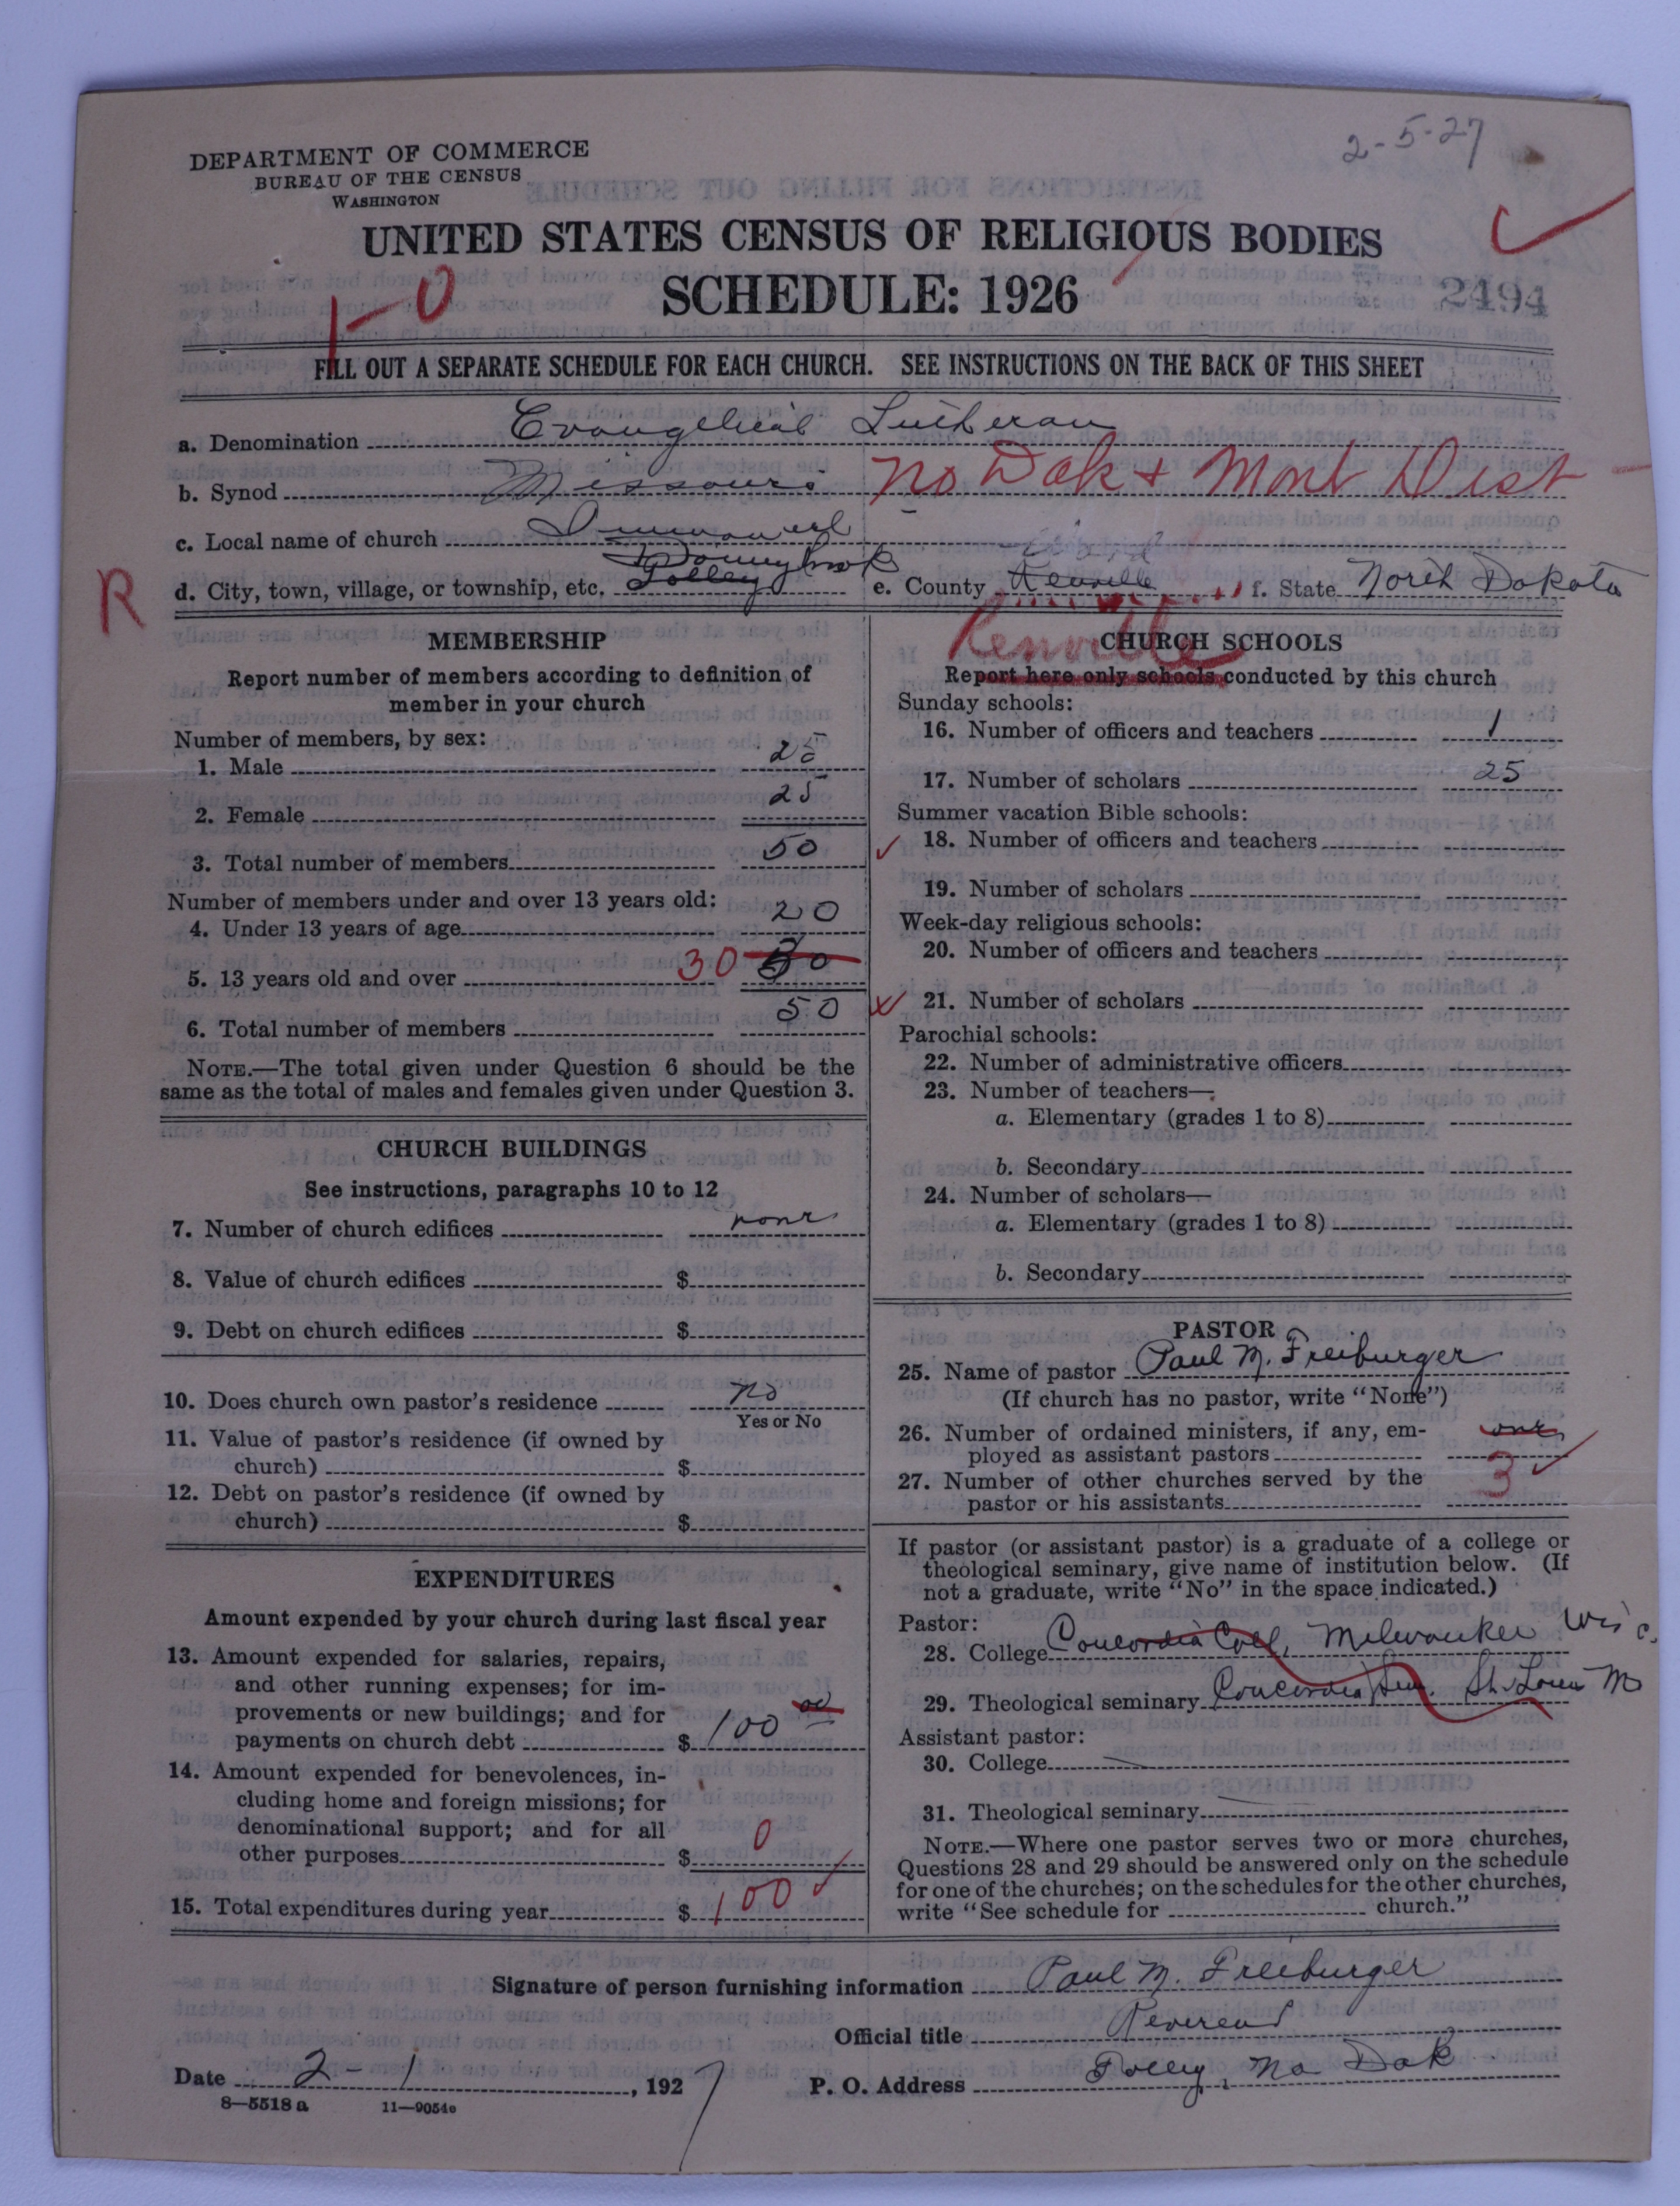 2-5-27
DEPARTMENT OF COMMERCE
BUREAU OF THE CENSUS
WASHINGTON
UNITED STATES CENSUS OF RELIGIOUS BODIES
SCHEDULE: 1926
2494
1-0
FILL OUT A SEPARATE SCHEDULE FOR EACH CHURCH. SEE INSTRUCTIONS ON THE BACK OF THIS SHEET
a. Denomination Evangelical Lutheran
b. Synod Missouri No Dak + Mont Dist
c. Local name of church Immanuel
Donnybrook
R
d. City, town, village, or township, etc. Tolley e. County Renville f. State North Dakota
Renville
MEMBERSHIP
Report number of members according to definition of
member in your church
Number of members, by sex:
1. Male 25
2. Female 25
3. Total number of members 50
Number of members under and over 13 years old:
4. Under 13 years of age 20
5. 13 years old and over 30 30
6. Total number of members 50
NOTE.—The total given under Question 6 should be the
same as the total of males and females given under Question 3.
CHURCH BUILDINGS
See instructions, paragraphs 10 to 12
7. Number of church edifices none
8. Value of church edifices $
9. Debt on church edifices $
10. Does church own pastor's residence no
Yes or No
11. Value of pastor's residence (if owned by
church) $
12. Debt on pastor's residence (if owned by
church) $
EXPENDITURES
Amount expended by your church during last fiscal year
13. Amount expended for salaries, repairs,
and other running expenses; for im-
provements or new buildings; and for
payments on church debt $ 100 00
14. Amount expended for benevolences, in-
cluding home and foreign missions; for
denominational support; and for all
other purposes $ 0
15. Total expenditures during year $ 100
CHURCH SCHOOLS
Report here only schools conducted by this church
Sunday schools:
16. Number of officers and teachers 1
17. Number of scholars 25
Summer vacation Bible schools:
18. Number of officers and teachers
19. Number of scholars
Week-day religious schools:
20. Number of officers and teachers
21. Number of scholars
Parochial schools:
22. Number of administrative officers
23. Number of teachers—
a. Elementary (grades 1 to 8)
b. Secondary
24. Number of scholars—
a. Elementary (grades 1 to 8)
b. Secondary
PASTOR
25. Name of pastor Paul M. Freiburger
(If church has no pastor, write "None")
26. Number of ordained ministers, if any, em-
ployed as assistant pastors one
27. Number of other churches served by the
pastor or his assistants 3
If pastor (or assistant pastor) is a graduate of a college or
theological seminary, give name of institution below. (If
not a graduate, write "No" in the space indicated.)
Pastor:
28. College Concordia Coll, Milwaukee Wisc.
29. Theological seminary Concordia Sem. St. Louis Mo
Assistant pastor:
30. College
31. Theological seminary
NOTE.—Where one pastor serves two or more churches,
Questions 28 and 29 should be answered only on the schedule
for one of the churches; on the schedules for the other churches,
write "See schedule for church."
Signature of person furnishing information Paul M. Freiburger
Official title Reverend
Date 2-1, 1927 P. O. Address Tolley, No Dak
8—5518 a 11—9054